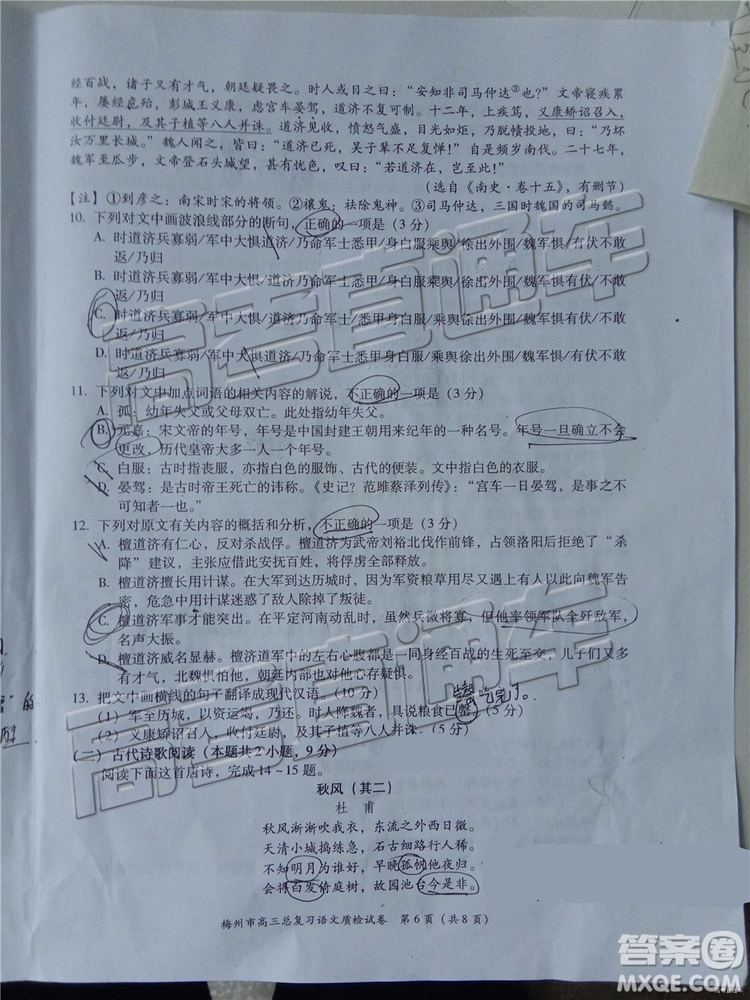 经百战，诸子又有才气，朝廷疑畏之。时人或目之曰：“安知非司马仲达③也?”文帝寝疾累
年，屡经危殆，彭城王义康，虑宫车晏驾，道济不可复制。十二年，上疾笃，义康矫诏召入，
收付廷尉，及其子植等八人并诛。道济见收，愤怒气盛，目光如炬，乃脱帻投地，曰：“乃坏
汝万里长城。”魏人闻之，皆曰：“道济已死，吴子辈不足复惮！”自是频岁南伐。二十七年，
魏军至瓜步，文帝登石头城望，甚有忧色，叹曰：“若道济在，岂至此！”
（选自《南史·卷十五》，有删节）
【注】①到彦之：南宋时宋的将领。②禳鬼：祛除鬼神。③司马仲达，三国时魏国的司马懿。
10. 下列对文中画波浪线部分的断句，正确的一项是（3 分）
A. 时道济兵寡弱/军中大惧道济/乃命军士悉甲/身白服乘舆/徐出外围/魏军惧/有伏不敢
返/乃归
B. 时道济兵寡弱/军中大惧/道济乃命军士悉甲/身白服乘舆/徐出外围/魏军惧/有伏不敢
返/乃归
C. 时道济兵寡弱/军中大惧/道济乃命军士悉甲/身白服乘舆/徐出外围/魏军惧有伏/不敢
返/乃归
D. 时道济兵寡弱/军中大惧道济/乃命军士悉甲身白服/乘舆徐出外围/魏军惧有伏/不敢
返/乃归
11. 下列对文中加点词语的相关内容的解说，不正确的一项是（3 分）
A. 孤：幼年失父或父母双亡。此处指幼年失父。
B. 元嘉：宋文帝的年号，年号是中国封建王朝用来纪年的一种名号。年号一旦确立不会
更改，历代皇帝大多一人一个年号。
C. 白服：古时指丧服，亦指白色的服饰、古代的便装。文中指白色的衣服。
D. 晏驾：是古时帝王死亡的讳称。《史记？范雎蔡泽列传》：“宫车一日晏驾，是事之不
可知者一也。”
12. 下列对原文有关内容的概括和分析，不正确的一项是（3 分）
A. 檀道济有仁心，反对杀战俘。檀道济为武帝刘裕北伐作前锋，占领洛阳后拒绝了“杀
降”建议，主张应借此安抚百姓，将俘虏全部释放。
B. 檀道济擅长用计谋。在大军到达历城时，因为军资粮草用尽而回，叛徒向魏军告
密，危急中用计谋迷惑了敌人除掉了叛徒。
C. 檀道济军事才能突出。在平定河南动乱时，虽然兵微将寡，但他率领军队全歼敌军，
名声大振。
D. 檀道济威名显赫。檀道济军中的左右心腹都是一同身经百战的勇士，几个儿子又多
有才气，北魏惧怕他，朝廷内部也对他心存疑惧。
13. 把文中画横线的句子翻译成现代汉语。（10 分）
（1）军至历城，以资运竭，乃还。时人降魏者，具说粮食已罄。（5 分）
（2）义康矫诏召入，收付廷尉，及其子植等八人并诛。（5 分）
（二）古代诗歌阅读（本题共2小题，9 分）
阅读下面这首唐诗，完成14～15题。
秋风（其二）
杜 甫
秋风淅淅吹我衣，东流之外西日微。
天清小城捣练急，石古细路行人稀。
不知明月为谁好，早晚孤帆他夜归。
会将白发倚庭树，故园池台今是非。
梅州市高三总复习语文质检试卷 第 6 页（共 8 页）
高考直通车
高考直通车
答案圈
MXQE.COM